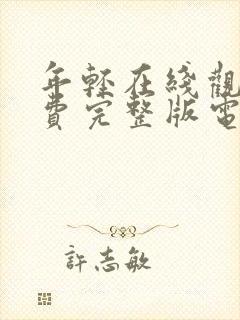 年輕在綫觀
費完整版電
許志敏